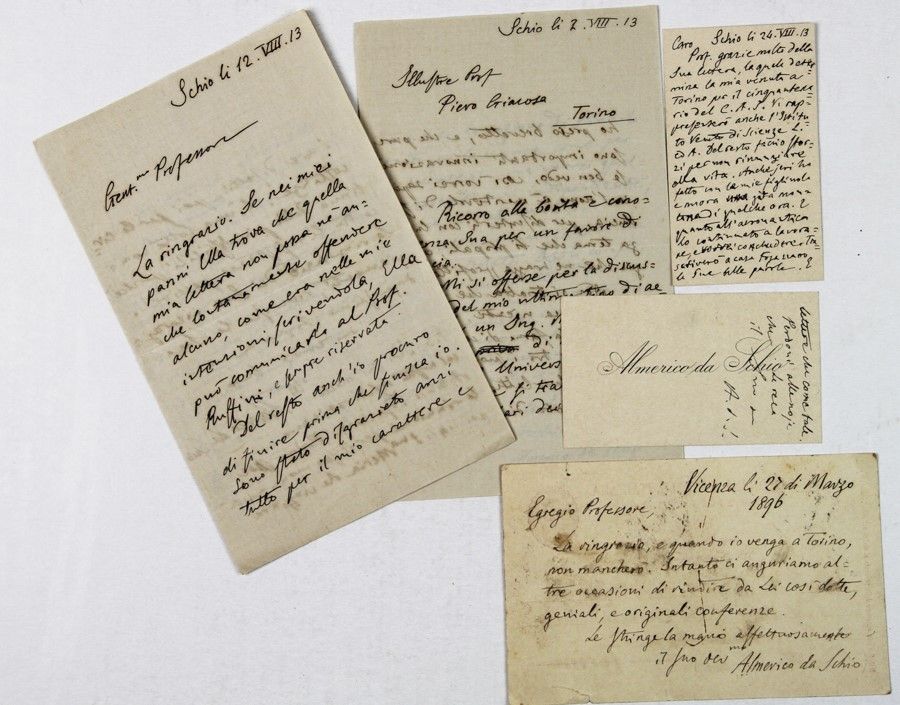 Schio li 12.VIII.13
Gent.mo Professore
La ringrazio. Se nei miei
panni Ella trova che quella
mia lettera non possa né an-
che lontanamente offendere
alcuno, come era nelle mie
intenzioni, scrivendola, Ella
può comunicarlo al Prof.
Ruffini, e sempre riservata.
Del resto anch'io procuro
di finire prima che finisca io.
Sono stato disgraziato anzi
tutto per il mio carattere e
Schio li 2.VIII.13
Illustre Prof
Piero Giacosa
Torino
Ricorro alla bontà e cono-
Sua per un favore di
si offerse per la discus-
del mio ultimo tipo di ae-
un Ing.
di
Univers
si tra
Caro Schio li 24.VIII.13
Prof. grazie molte della
Sua lettera, la quale deter
mina la mia venuta a
Torino per il cinquantena
rio del C.A.I. Vi rap-
presenterò anche l'Istitu
to Veneto di Scienze L.
ed A. Del resto faccio sfor-
zi per non rinunziare
alla vita. Anche ieri ho
fatto con la mia figliuola
e mora una gita mon-
tana di qualche ora. E
quanto all'aeronautica
ho continuato a lavora-
re, e vorrei conchiudere. Tra-
scriverò a casa
le Sue belle parole. E
Almerico da Schio
lettere che come tale.
Perdoni alle noje
che Le reca
il suo
A. d. S.
Vicenza li 27 di Marzo
1896
Egregio Professore,
La ringrazio, e quando io venga a Torino,
non mancherò. Intanto ci auguriamo al-
tre occasioni di riudire da Lei così dotte,
geniali, e originali conferenze.
Le stringe la mano affettuosamente
il suo dev.mo Almerico da Schio